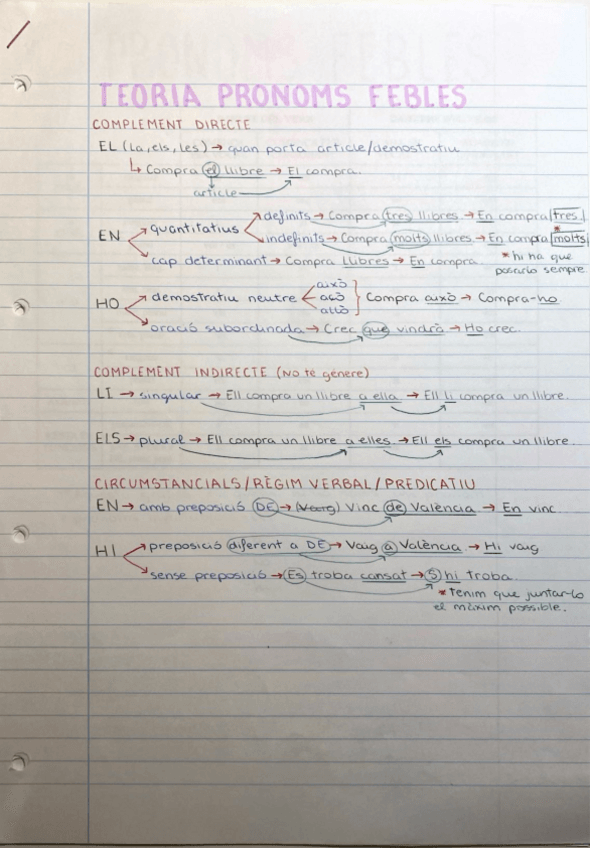 TEORIA PRONOMS FEBLES
COMPLEMENT DIRECTE
EL (la, els, les) → quan porta article/demostratiu
↳ Compra el llibre → El compra.
article
EN quantitatius definits → Compra tres llibres → En compra tres
indefinits → Compra molts llibres → En compra molts
cap determinant → Compra llibres → En compra. * hi ha que
posarlo sempre
HO demostratiu neutre això açò allò Compra això → Compra-ho
oració subordinada → Crec que vindrà → Ho crec.
COMPLEMENT INDIRECTE (No té gènere)
LI → singular → Ell compra un llibre a ella → Ell li compra un llibre.
ELS → plural → Ell compra un llibre a elles → Ell els compra un llibre.
CIRCUMSTANCIALS/RÈGIM VERBAL/PREDICATIU
EN → amb preposició DE → Vinc de València → En vinc
HI preposició diferent a DE → Vaig a València → Hi vaig
sense preposició → Es troba cansat → S'hi troba
* Tenim que juntar-lo
el màxim possible.